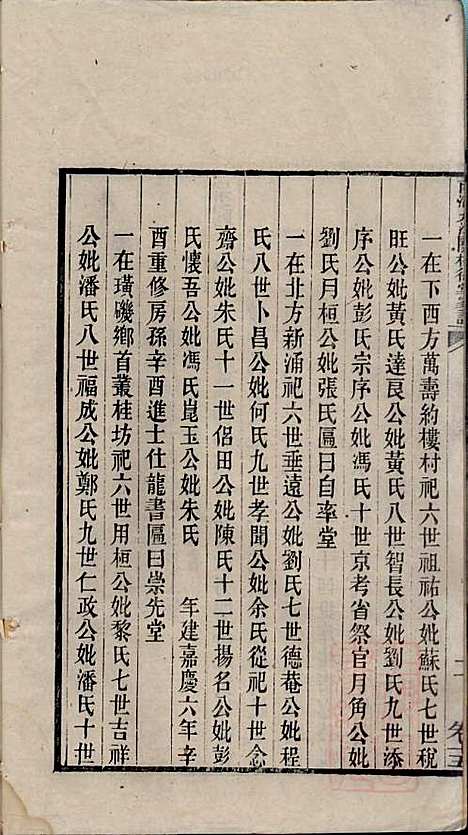 一在下西方萬壽約樓村祀六世祖祐公妣蘇氏七世稅
旺公妣黃氏達良公妣黃氏八世智長公妣劉氏九世添
序公妣彭氏宗序公妣馮氏十世京考省祭官月角公妣
劉氏月桓公妣張氏匾曰自率堂
一在北方新涌祀六世垂遠公妣劉氏七世德菴公妣程
氏八世卜昌公妣何氏九世孝聞公妣余氏從祀十世念
齋公妣朱氏十一世侶田公妣陳氏十二世揚名公妣彭
氏懷吾公妣馮氏崑玉公妣朱氏 年建嘉慶六年辛
酉重修房孫辛酉進士仕龍書匾曰崇先堂
一在璜磯鄉首叢桂坊祀六世用桓公妣黎氏七世吉祥
公妣潘氏八世福成公妣鄭氏九世仁政公妣潘氏十世